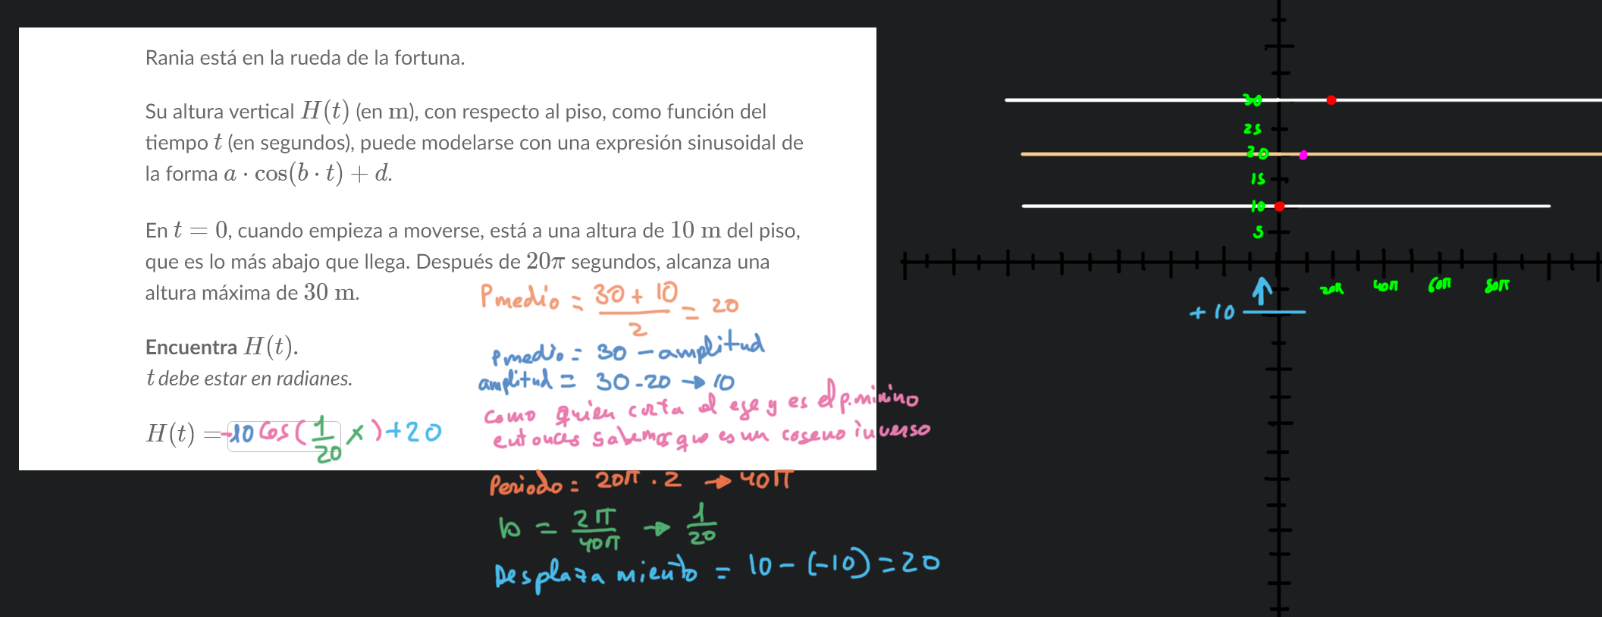 Rania está en la rueda de la fortuna.
Su altura vertical H(t) (en m), con respecto al piso, como función del
tiempo t (en segundos), puede modelarse con una expresión sinusoidal de
la forma a · cos(b · t) + d.
En t = 0, cuando empieza a moverse, está a una altura de 10 m del piso,
que es lo más abajo que llega. Después de 20π segundos, alcanza una
altura máxima de 30 m.
Encuentra H(t).
t debe estar en radianes.
H(t) = -10 Cos(1/20 x) + 20
Pmedio = (30 + 10)/2 = 20
Pmedio = 30 - amplitud
amplitud = 30 - 20 → 10
como quien corta el eje y es el p.minino
entonces sabemos que es un coseno inverso
Periodo = 20π . 2 → 40π
b = 2π/40π → 1/20
Desplaza miento = 10 - (-10) = 20
30
25
20
15
10
5
20π 40π 60π 80π
+10